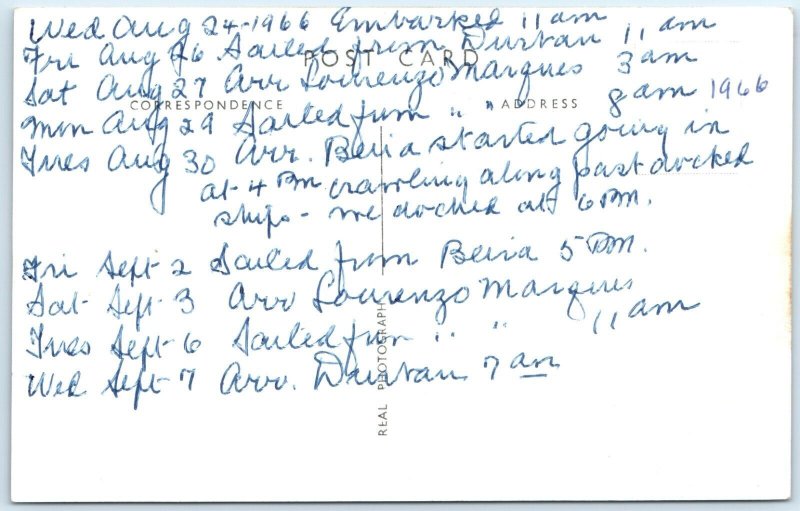 Wed Aug 24-1966 Embarked 11 am
Fri Aug 26 Sailed from Durban 11 am
POST CARD
Sat Aug 27 Arr Lourenzo Marques 3 am
CORRESPONDENCE ADDRESS
Mon Aug 29 Sailed from " " 8 am 1966
Tues Aug 30 Arr. Beira started going in
at 4 PM crawling along past docked
ships - we docked at 6 PM.
Fri Sept 2 Sailed from Beira 5 PM.
Sat Sept 3 Arr Lourenzo Marques
Tues Sept 6 Sailed from " " 11 am
Wed Sept 7 Arr. Durban 7 am
REAL PHOTOGRAPH